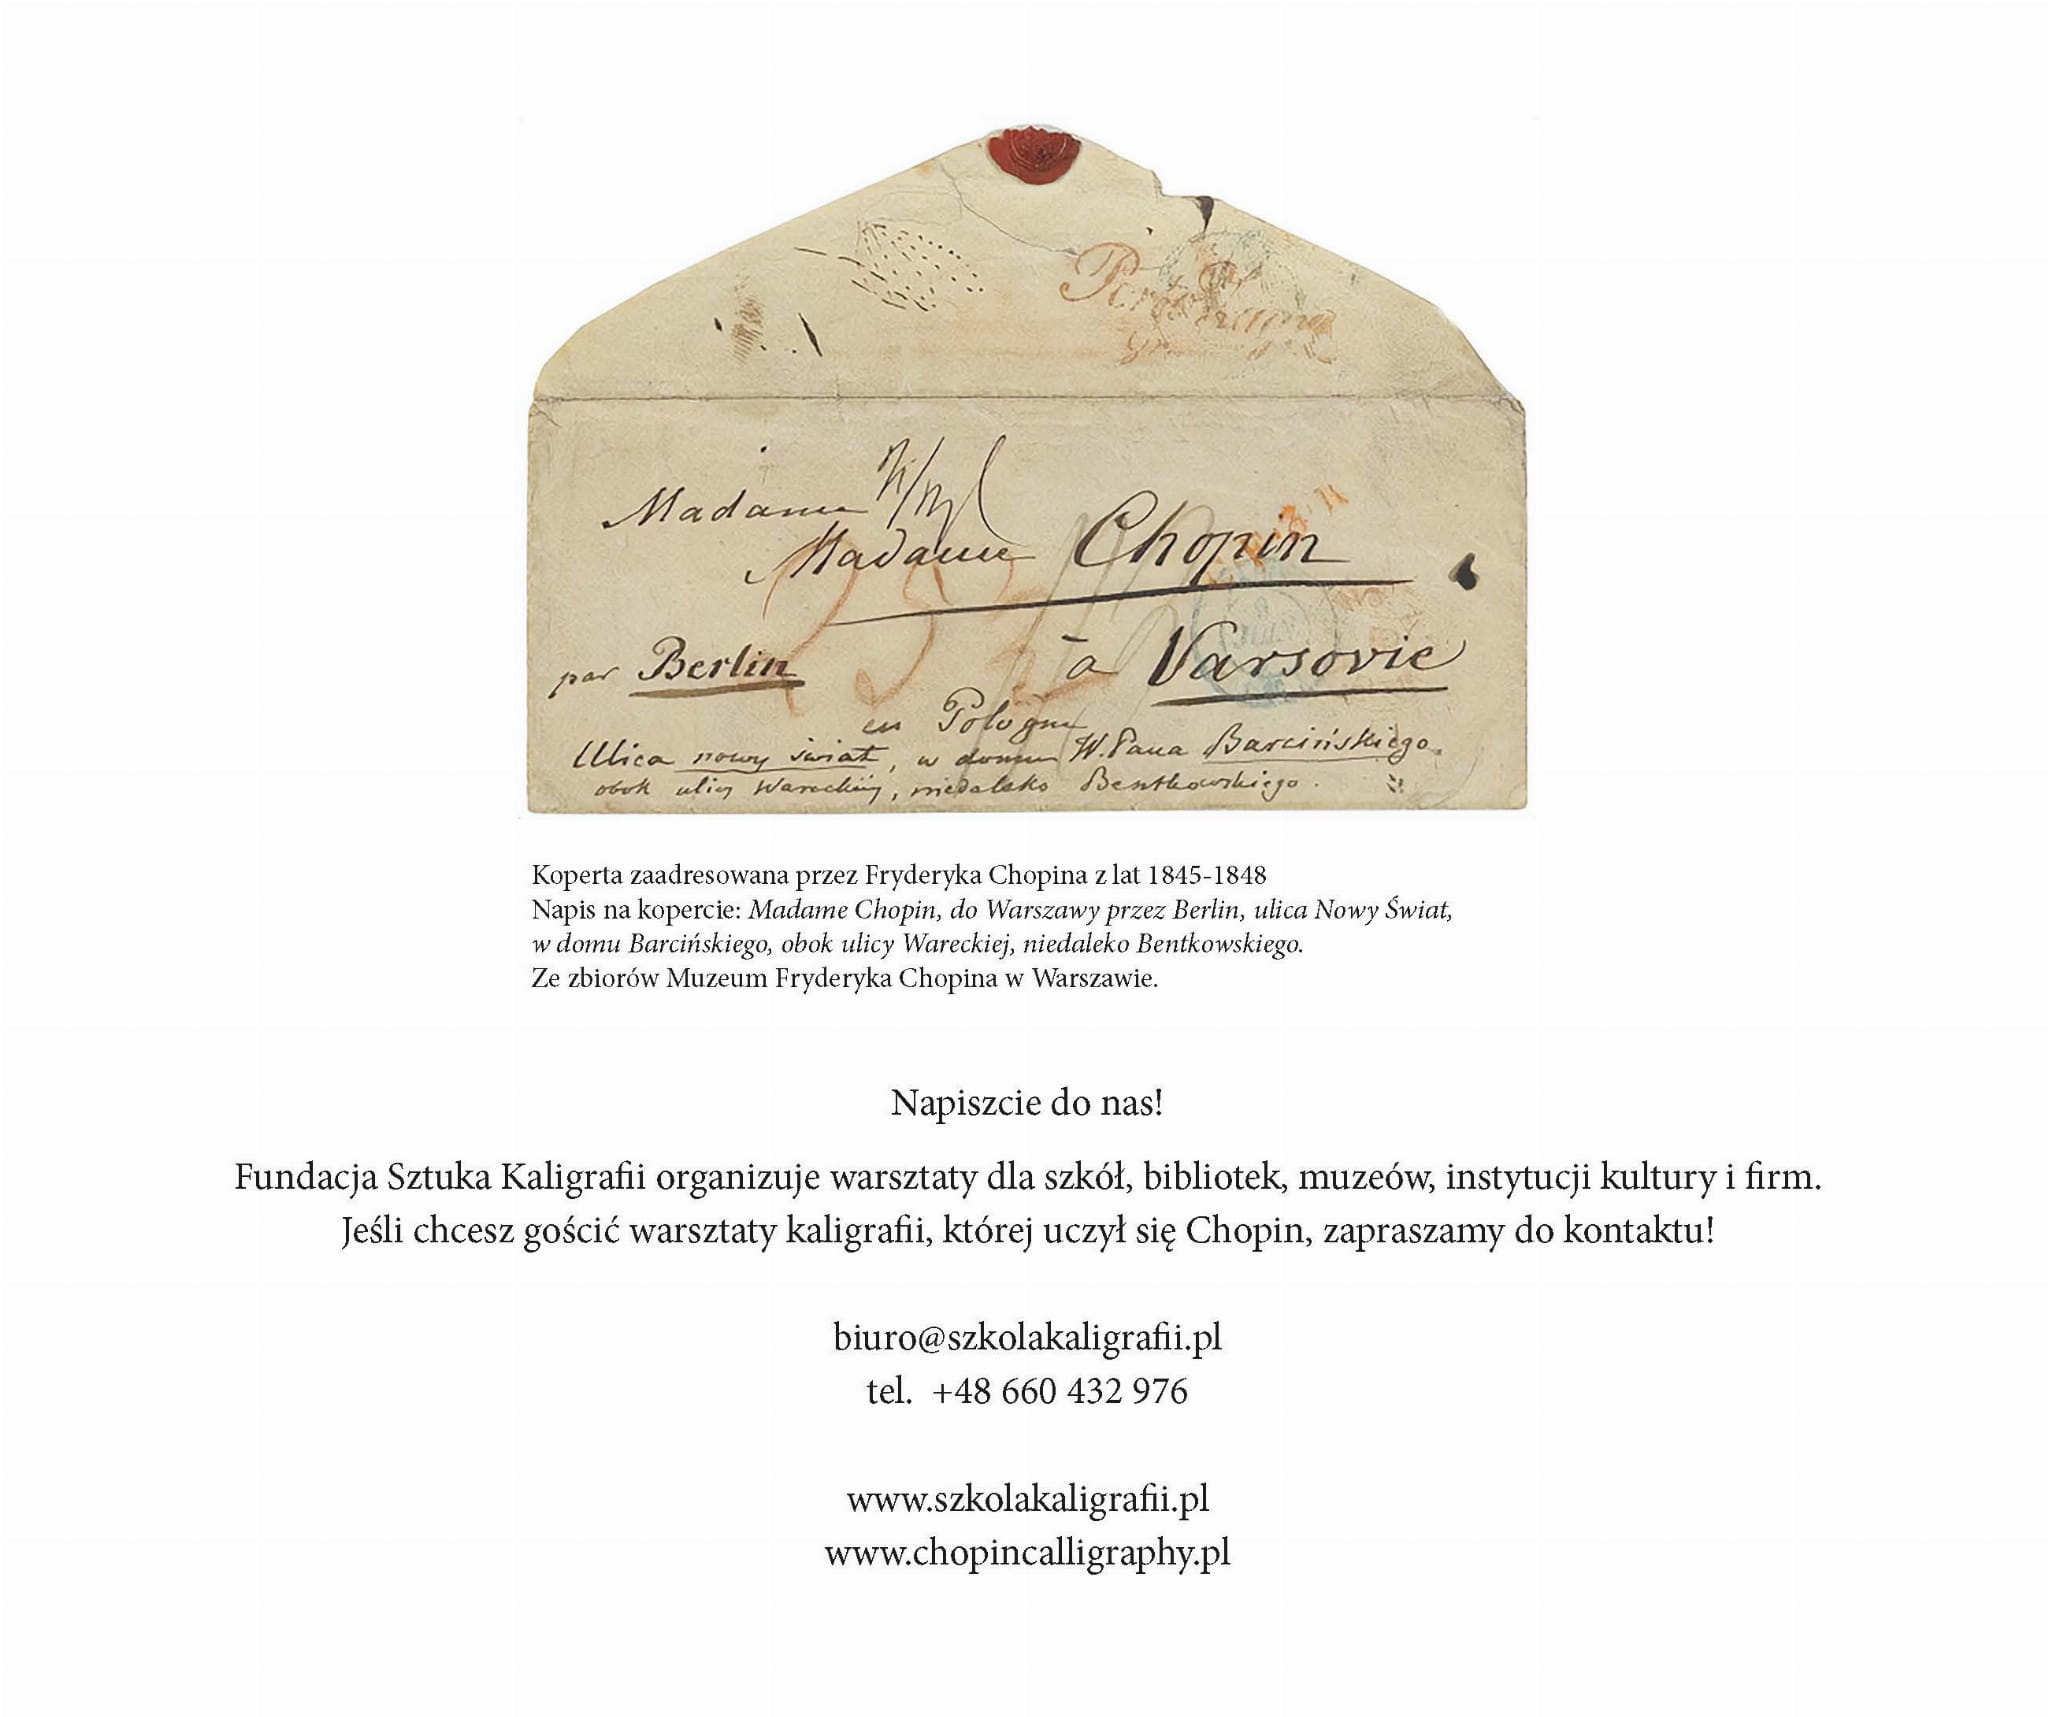 Porto
Madame
Madame Chopin
par Berlin
à Varsovie
en Pologne
Ulica nowy świat, w domu W. Pana Barcińskiego.
obok ulicy Wareckiéj, niedaleko Bentkowskiego.
Koperta zaadresowana przez Fryderyka Chopina z lat 1845-1848
Napis na kopercie: Madame Chopin, do Warszawy przez Berlin, ulica Nowy Świat,
w domu Barcińskiego, obok ulicy Wareckiej, niedaleko Bentkowskiego.
Ze zbiorów Muzeum Fryderyka Chopina w Warszawie.
Napiszcie do nas!
Fundacja Sztuka Kaligrafii organizuje warsztaty dla szkół, bibliotek, muzeów, instytucji kultury i firm.
Jeśli chcesz gościć warsztaty kaligrafii, której uczył się Chopin, zapraszamy do kontaktu!
biuro@szkolakaligrafii.pl
tel. +48 660 432 976
www.szkolakaligrafii.pl
www.chopincalligraphy.pl